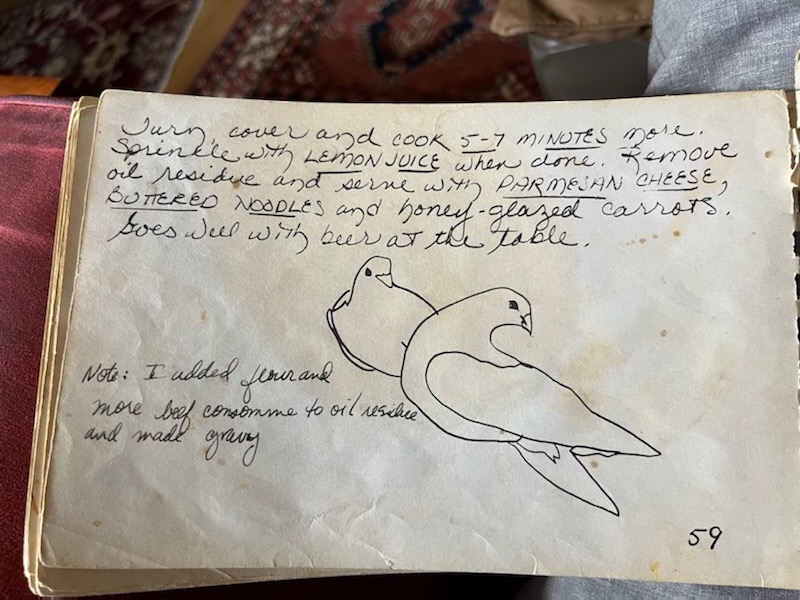 Turn, cover and COOK 5-7 MINUTES more.
Sprinkle with LEMON JUICE when done. Remove
oil residue and serve with PARMESAN CHEESE,
BUTTERED NOODLES and honey-glazed carrots.
Goes well with beer at the table.
Note: I added flour and
more beef consomme to oil residue
and made gravy
59